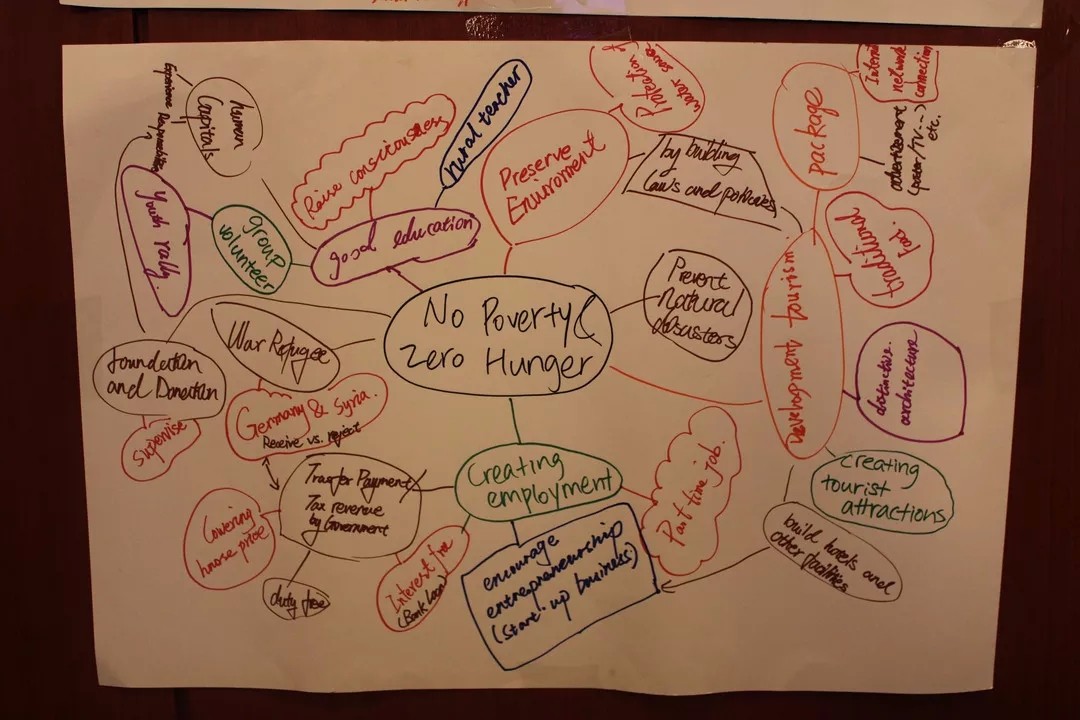 No Poverty &
Zero Hunger
good education
Raise consciousness
rural teacher
group
volunteer
Youth rally.
human
Capitals
Experience
Foundation
and Donation
Supervise
War Refugee
Germany & Syria.
Receive vs. reject
Transfer Payment
Tax revenue
by Government
Lowering
house price
duty free
Interest free
(Bank loan)
Creating
employment
encourage
entrepreneurship
(start-up business)
Part time job.
Preserve
Enviroment
Protection of
water source
by building
laws and policies
Prevent
natural
disasters
Development tourism
package
network
connection
advertisement
(poster/TV--->
etc.
traditional
food.
distinctive.
architecture
creating
tourist
attractions
build hotels and
other facilities